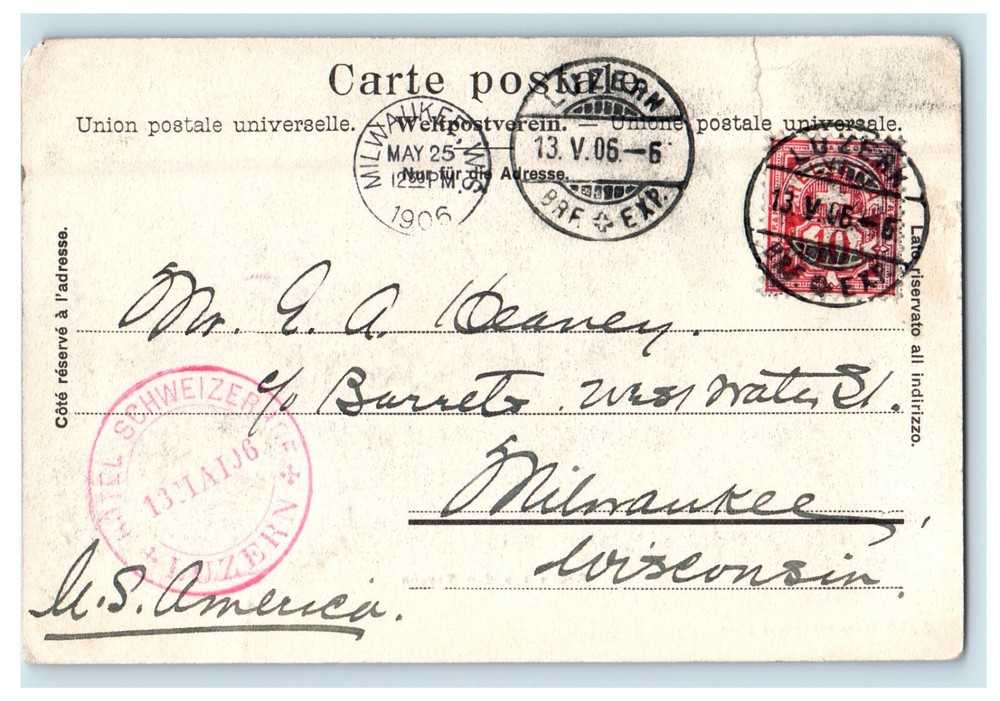 Carte postale
Union postale universelle. — Weltpostverein. — Unione postale universale.
Nur für die Adresse.
MILWAUKEE, WIS.
MAY 25
12 30 PM
1906
LUZERN
13. V. 06. — 6
BRF. EXP.
LUZERN
13. V. 06. — 6
BRF. EXP.
10
Côté réservé à l'adresse.
Lato riservato all indirizzo.
Mr. E. A. Heaney.
c/o Barrets West Water St.
Milwaukee,
Wisconsin.
U.S. America.
HOTEL SCHWEIZERHOF
13 MAI 06
LUZERN